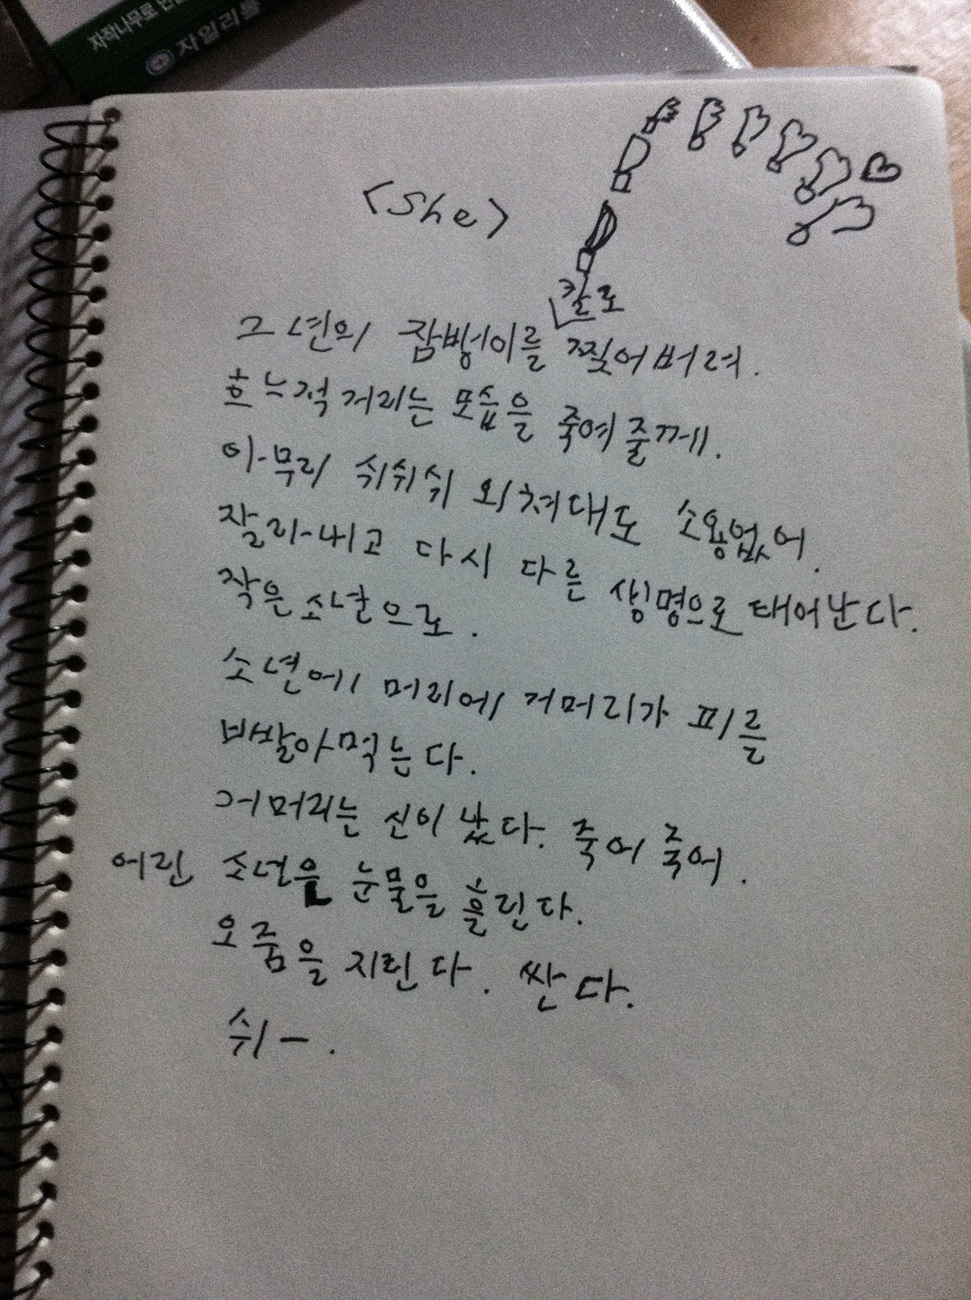 자작나무로 만든
자일리톨
<She>
칼로
그년의 잠방이를 찢어버려.
흐느적거리는 모습을 죽여줄께.
아무리 쉬쉬쉬 외쳐대도 소용없어.
잘라내고 다시 다른 생명으로 태어난다.
작은 소년으로.
소년에 머리에 거머리가 피를
빠발아먹는다.
거머리는 신이 났다. 죽어 죽어.
어린 소년은 눈물을 흘린다.
오줌을 지린다. 싼다.
쉬ㅡ.